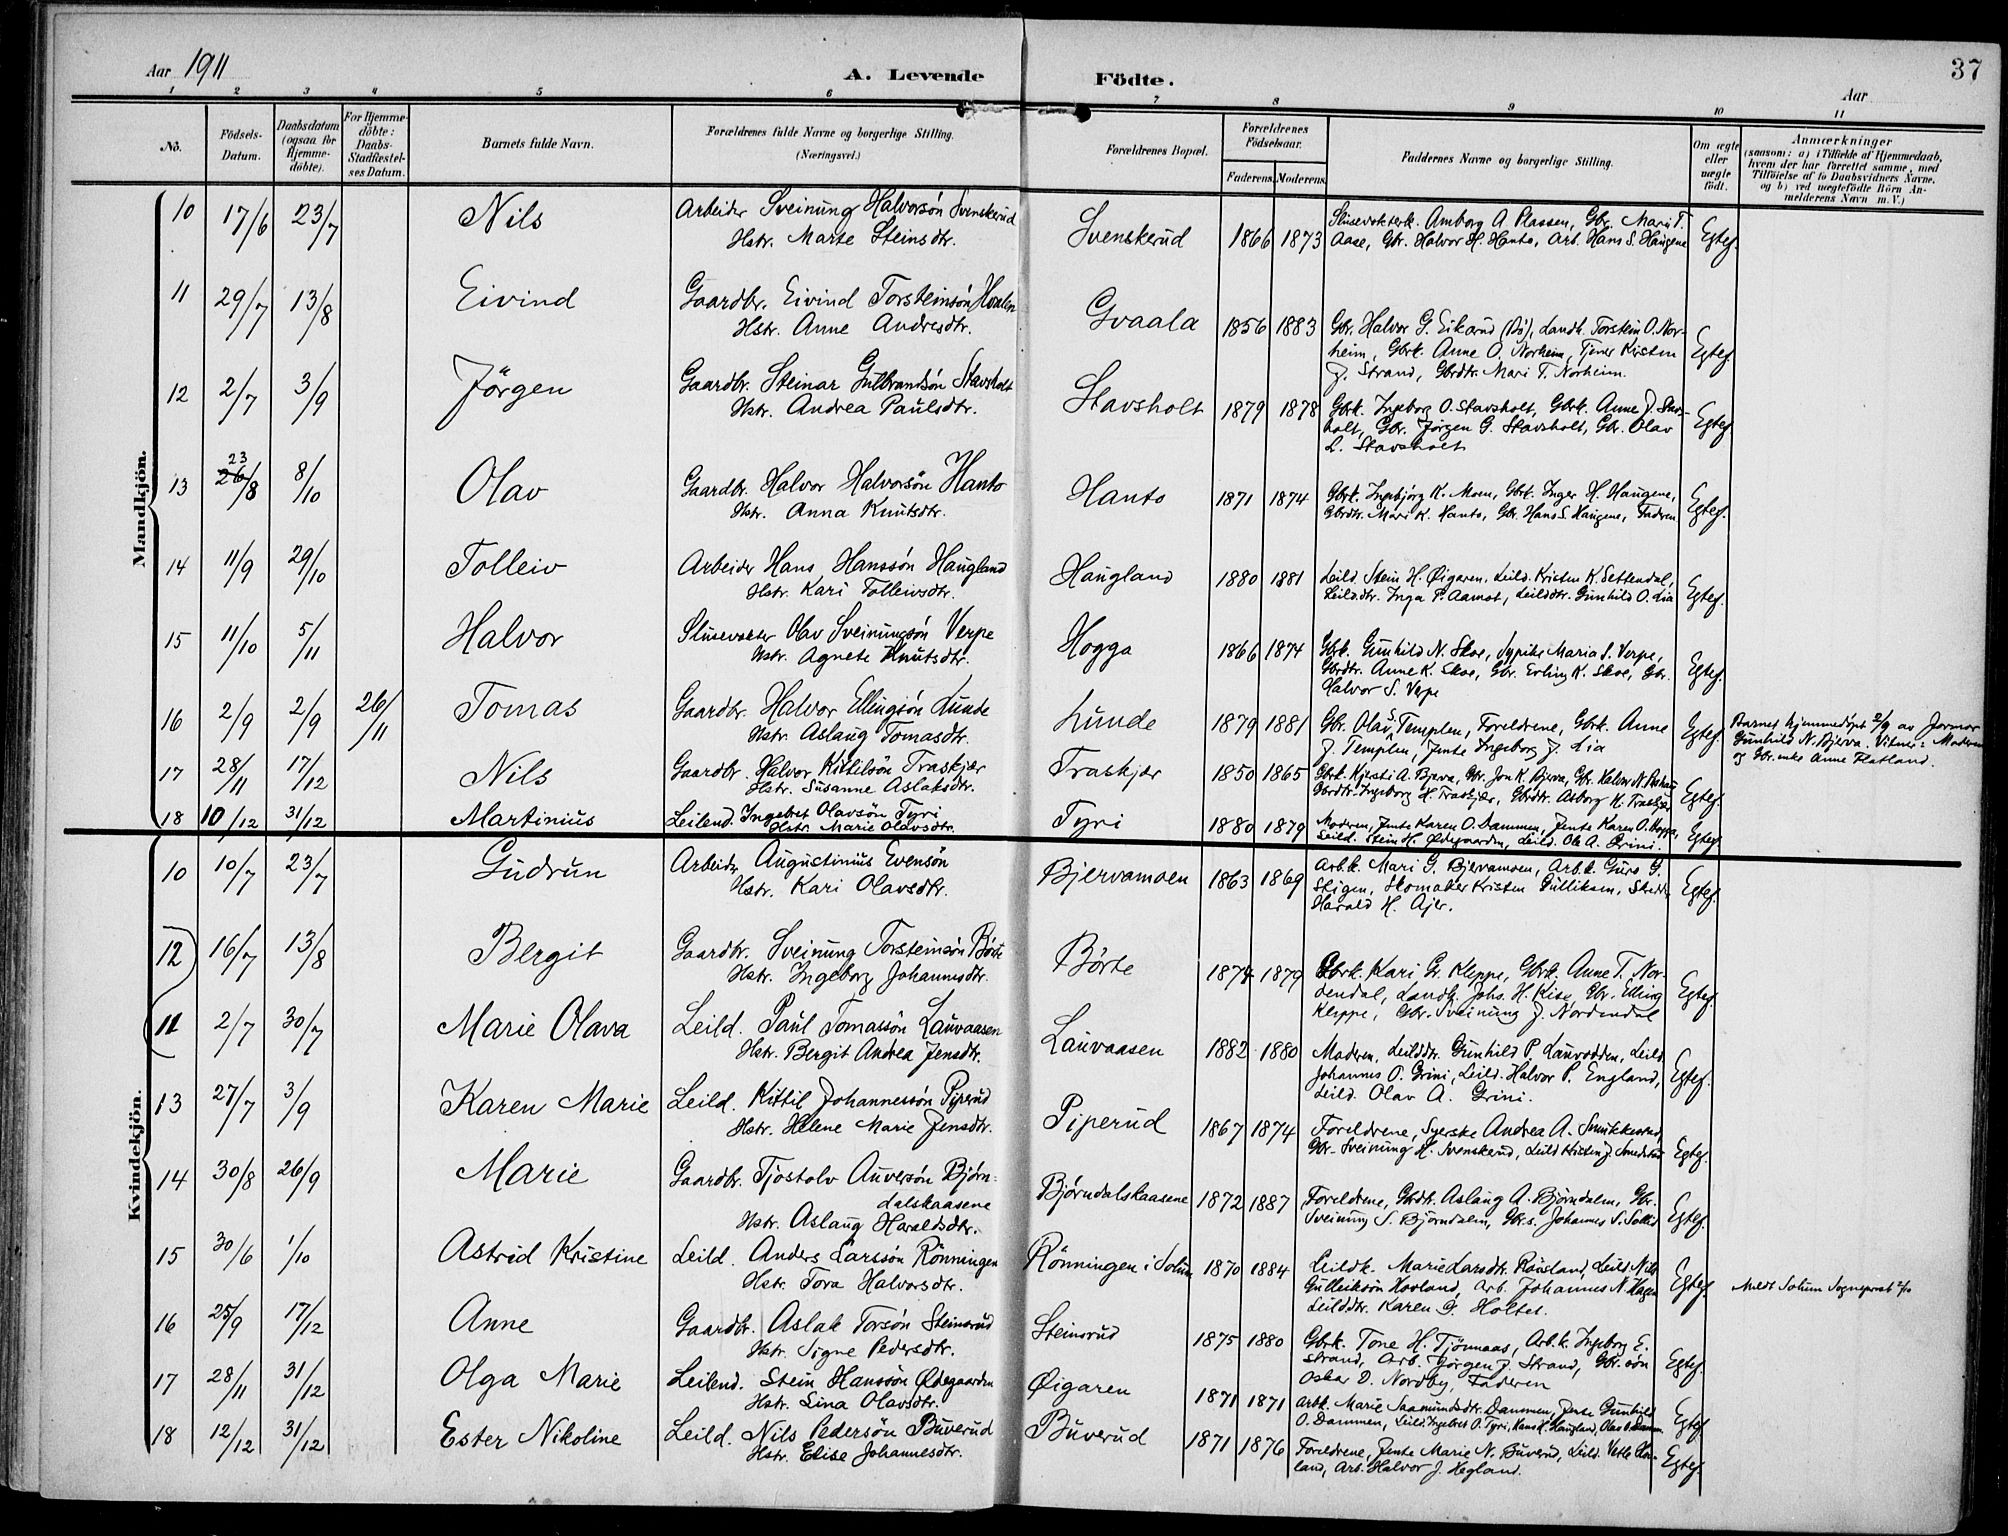 37
Aar 1911
A. Levende Födte.
Aar
1 2 3 4 5 6 7 8 9 10 11
No.
Födsels-Datum.
Daabsdatum (ogsaa for Hjemme-döbte).
For Hjemme-döbte: Daabs-Stadfæstel-ses Datum.
Barnets fulde Navn.
Forældrenes fulde Navne og borgerlige Stilling.
(Næringsvei.)
Forældrenes Bopæl.
Forældrenes Födselsaar.
Faderens. Moderens.
Faddernes Navne og borgerlige Stilling.
Om ægte eller uægte födt.
Anmærkninger
(saasom: a) i Tilfælde af Hjemmedaab,
hvem der har forrettet samme, med
Tilföielse af to Daabsvidners Navne.
og b) ved uægtefödte Börn An-
melderens Navn m. V.)
Mandkjön.
10 17/6 23/7 Nils Arbeider Sveinung Halvorsön Svenskerud
Hstr. Marte Steinsdtr.
Svenskerud 1866 1873 Slusevokterk. Amborg A Plassen, Gbr. Mari T.
Aase, Gbr. Halvor H. Hanto, Arb. Hans S. Haugene Egtef.
11 29/7 13/8 Eivind Gaardbr. Eivind Torsteinsön Hvalen
Hstr. Anne Andresdtr.
Gvaala 1856 1883 Gbr. Halvor G. Eikarud (Bö), Landh. Torstein O. Nor-
heim, Gbrk. Anne O. Norheim, Tjener Kirsten
J. Strand, Gbrdtr. Mari T. Norheim. Egtef.
12 2/7 3/9 Jörgen Gaardbr. Steinar Gulbrandsön Stavsholt
Hstr. Andrea Paulsdtr.
Stavsholt 1879 1878 Gbrk. Ingeborg O. Stavsholt, Gbrk. Anne J. Stavs-
holt, Gbr. Jörgen G. Stavsholt, Gbr. Olav
L. Stavsholt Egtef.
13 23 26/8 8/10 Olav Gaardbr. Halvor Halvorsön Hanto
Hstr. Anna Knutsdtr.
Hanto 1871 1874 Gbrk. Ingebjörg K. Moen, Gbrk. Inger H. Haugene,
Gbrdtr. Mari K. Hanto, Gbr. Hans S. Haugene, Faderen Egtef.
14 11/9 29/10 Tolleiv Arbeider Hans Hanssön Haugland
Hstr. Kari Tolleivsdtr.
Haugland 1880 1881 Leild. Stein H. Øigaren, Leild. Kristen K. Settendal,
Leild.dtr. Inga P. Aamot, Leilddtr. Gunhild O. Lia Egtef.
15 11/10 5/11 Halvor Slusevokter Olav Sveinungsön Verpe
Hstr. Agnete Knutsdtr.
Hogga 1866 1874 Gbrk. Gunhild N. Skoe, Sypike Maria S. Verpe,
Gbrdtr. Anne K. Skoe, Gbr. Erling K. Skoe, Gbr.
Halvor S. Verpe Egtef.
16 2/9 2/9 26/11 Tomas Gaardbr. Halvor Ellingsön Lunde
Hstr. Aslaug Tomasdtr.
Lunde 1879 1881 Gbr. Olav S. Templen, Foreldrene, Gbrk. Anne
J. Templen, Jente Ingeborg J. Lia Egtef.
Barnet hjemmedöpt 2/9 av Jormor
Gunhild N. Bjerva. Vitner: Moderen
og Gbr. enke Anne Flatland.
17 28/11 17/12 Nils Gaardbr. Halvor Kittilsön Traskjær
Hstr. Susanne Aslaksdtr.
Traskjær 1850 1865 Gbrk. Kjersti A. Bjerva, Gbr. Jon K. Bjerva, Gbr. Halvor N.
Gbrdtr. Ingeborg H. Traskjær, Gbrdtr. Asborg H. Traskjær Egtef.
18 10/12 31/12 Martinius Leilend. Ingebret Olavsön Tyri
Hstr. Marie Olavsdtr.
Tyri 1880 1879 Moderen, Jente Karen O. Dammen, Jente Karen O. Hogga,
Leild. Stein H. Ødegaarden, Leild. Ole A. Grini. Egtef.
Kvindekjön.
10 10/7 23/7 Gudrun Arbeider Augustinius Evensön
Hstr. Kari Olavsdtr.
Bjervamoen 1863 1869 Arb.k. Mari G. Bjervamoen, Arb.k. Guro G.
Stigen, Skomaker Kristen Gulliksen,
Harald H. Ajer. Egtef.
12 16/7 13/8 Bergit Gaardbr. Sveinung Torsteinsön Börte
Hstr. Ingeborg Johannesdtr.
Börte 1874 1879 Gbrk. Kari Gr. Kleppe, Gbrk. Anne T. Nor-
dendal, Landh. Johs. H. Kise, Gbr. Elling
Kleppe, Gbr. Sveinung J. Nordendal Egtef.
11 2/7 30/7 Marie Olava Leild. Paul Tomassön Lauvaasen
Hstr. Bergit Andrea Jensdtr.
Lauvaasen 1882 1880 Moderen, Leilddtr. Gunhild P. Lauvodden, Leild.
Johannes O. Grini, Leild. Halvor P. England,
Leild. Olav A. Grini. Egtef.
13 27/7 3/9 Karen Marie Leild. Kittil Johannessön Piperud
Hstr. Helene Marie Jensdtr.
Piperud 1867 1874 Foreldrene, Syerske Andrea A.
Gbr. Sveinung H. Svenskerud, Leild Kristen J. Egtef.
14 30/8 26/9 Marie Gaardbr. Tjostolv Auversön Björn-
dalskaasene
Hstr. Aslaug Haraldsdtr.
Björndalskaasene 1872 1887 Foreldrene, Gbrdtr. Aslaug A. Björndalen, Gbr.
Sveinung S. Björndalen, Gbr.s. Johannes S. Solli Egtef.
15 30/6 1/10 Astrid Kristine Leild. Anders Larssön Rönningen
Hstr. Tora Halvorsdtr.
Rönningen i Solum 1870 1884 Leildk. Marie Larsdtr. Rausland, Leild Nils
Gulleiksön Hovland, Arb. Johannes N. Hagen
Leilddtr. Karen G. Holtet. Egtef.
Meldt Solum Sogneprest 2/10
16 25/9 17/12 Anne Gaardbr. Aslak Torsön Steinsrud
Hstr. Signe Pedersdtr.
Steinsrud 1875 1880 Gbrk. Tone H. Tjönnaas, Arb.k. Ingeborg E.
Strand, Arb. Jörgen J. Strand, Gbr. sön
Oskar D. Nordby, Faderen Egtef.
17 28/11 31/12 Olga Marie Leilend. Stein Hanssön Ødegaarden
Hstr. Lina Olavsdtr.
Øigaren 1871 1871 Arbk. Marie Saamundsdtr. Dammen, Jente Gunhild
O. Dammen, Leild. Ingebret O. Tyri, Hans H. Haugland, Olav O. Dammen Egtef.
18 12/12 31/12 Ester Nikoline Leild. Nils Pedersön Buverud
Hstr. Elise Johannesdtr.
Buverud 1871 1876 Foreldrene, Jente Marie N. Buverud, Leild. Vetle
land, Arb. Halvor J. Hegland. Egtef.